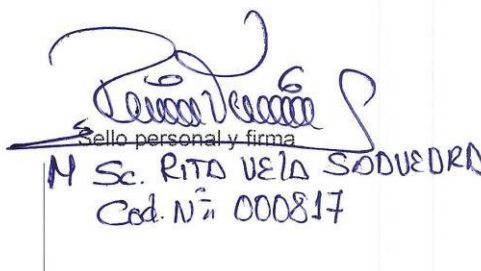 Sello personal y firma
M Sc. RITA VELA SAAVEDRA
Cod. Nº 000817